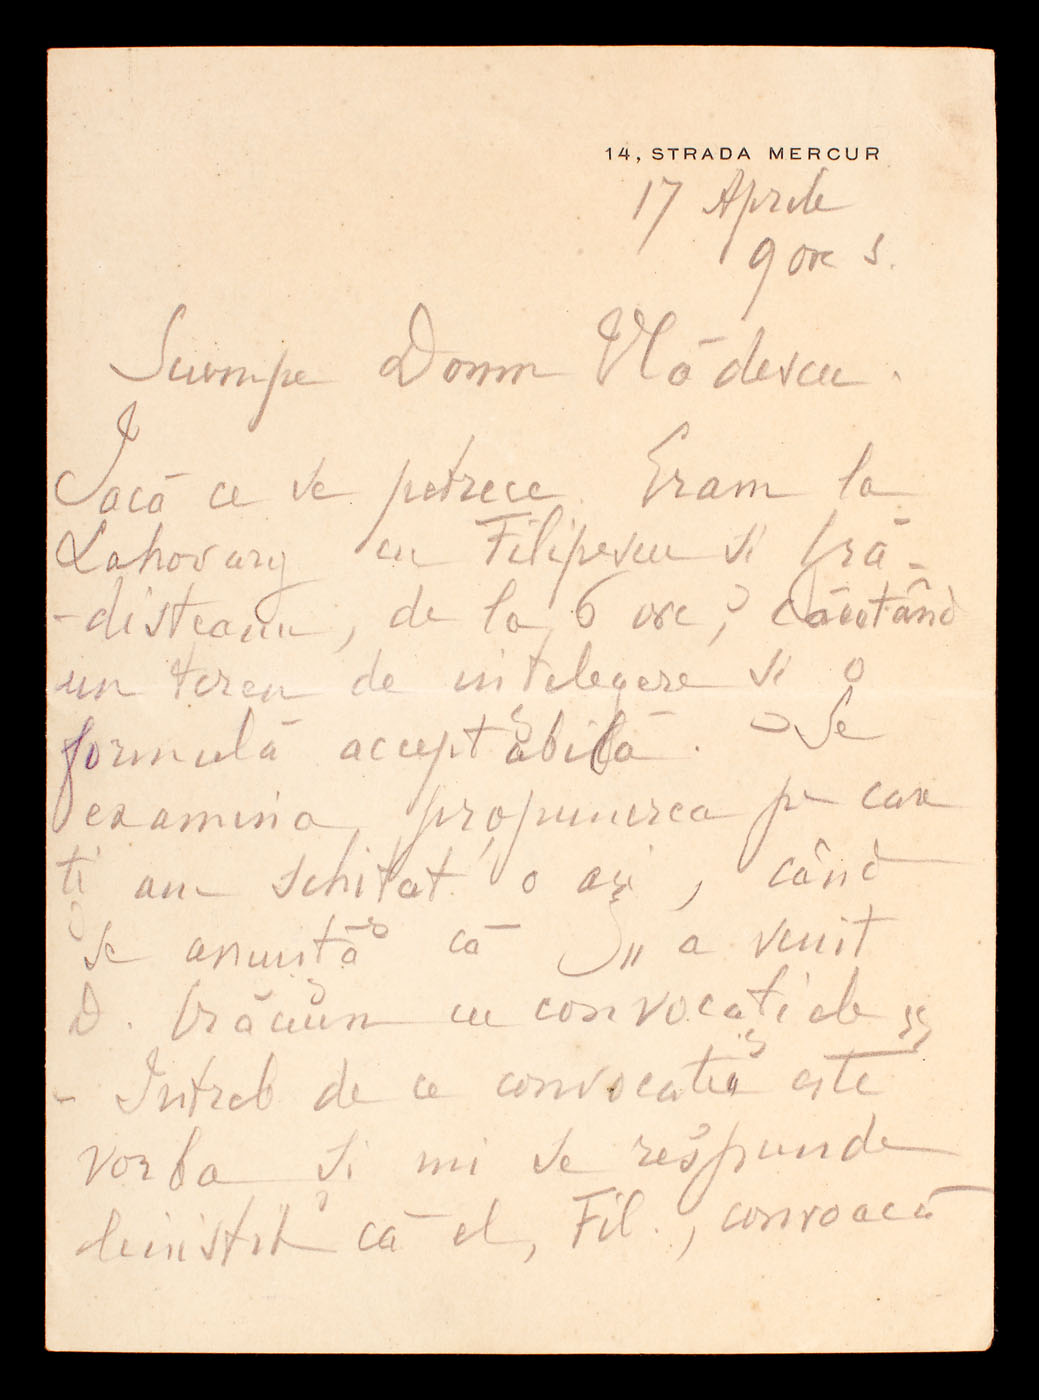 14, STRADA MERCUR
17 Aprile
9 ore s.
Scumpe Domn Vlădescu.
Iacă ce se petrece. Eram la
Lahovary cu Filipescu și Gră-
-disteanu, de la 6 ore, căutând
un teren de intelegere si o
formulă acceptabilă. - Se
examina propunerea pe care
ti am schitat o azi, când
se anunță că „a venit
D. Crăciun cu convocațiele„
- Intreb de ce convocație este
vorba si mi se respunde
linistit că el, Fil., convoacă